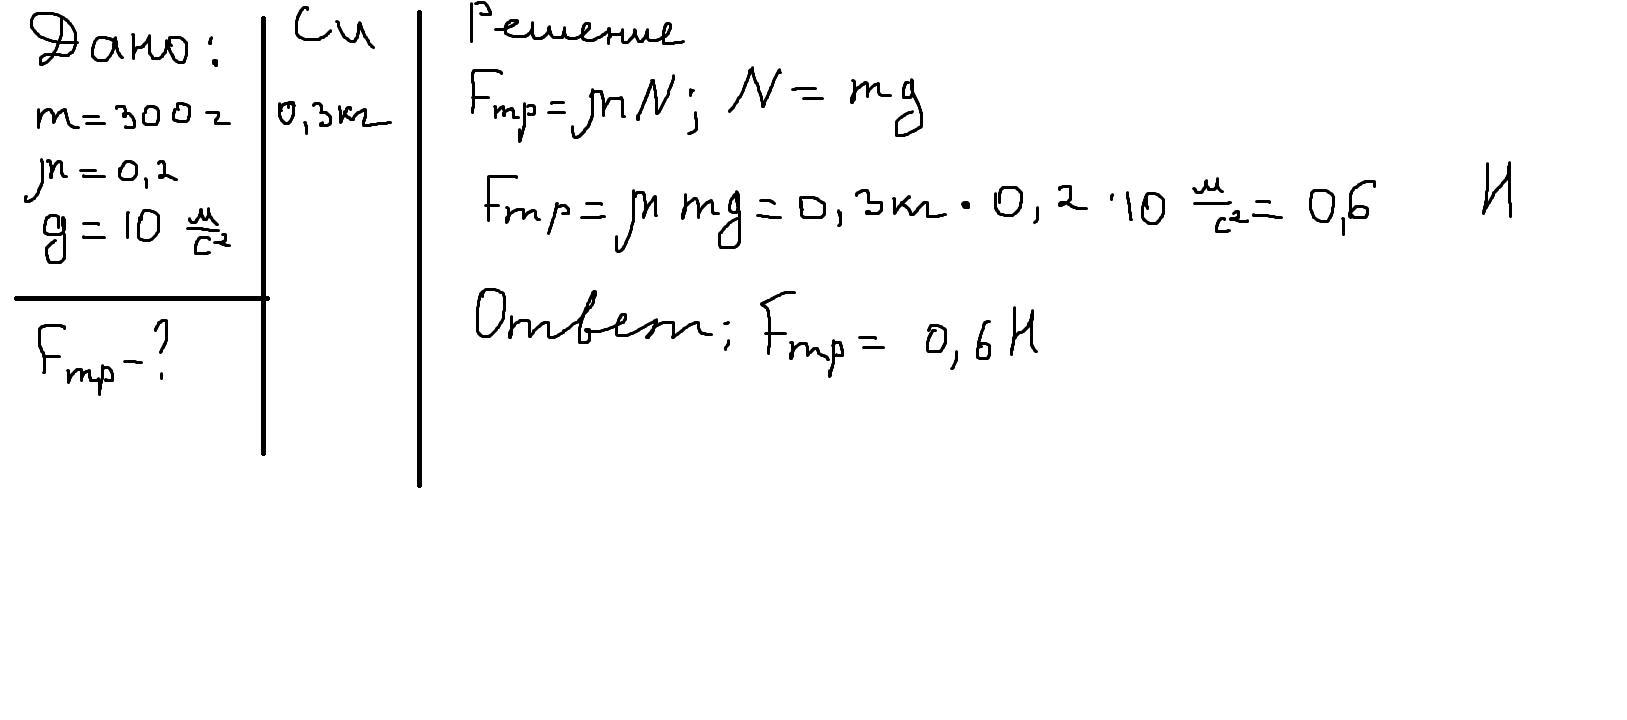 Дано:
m = 300 г
μ = 0,2
g = 10 м/с²
Fтр - ?
Си
0,3 кг
Решение
Fтр = μN; N = mg
Fтр = μ mg = 0,3 кг · 0,2 · 10 м/с² = 0,6 Н
Ответ; Fтр = 0,6 Н